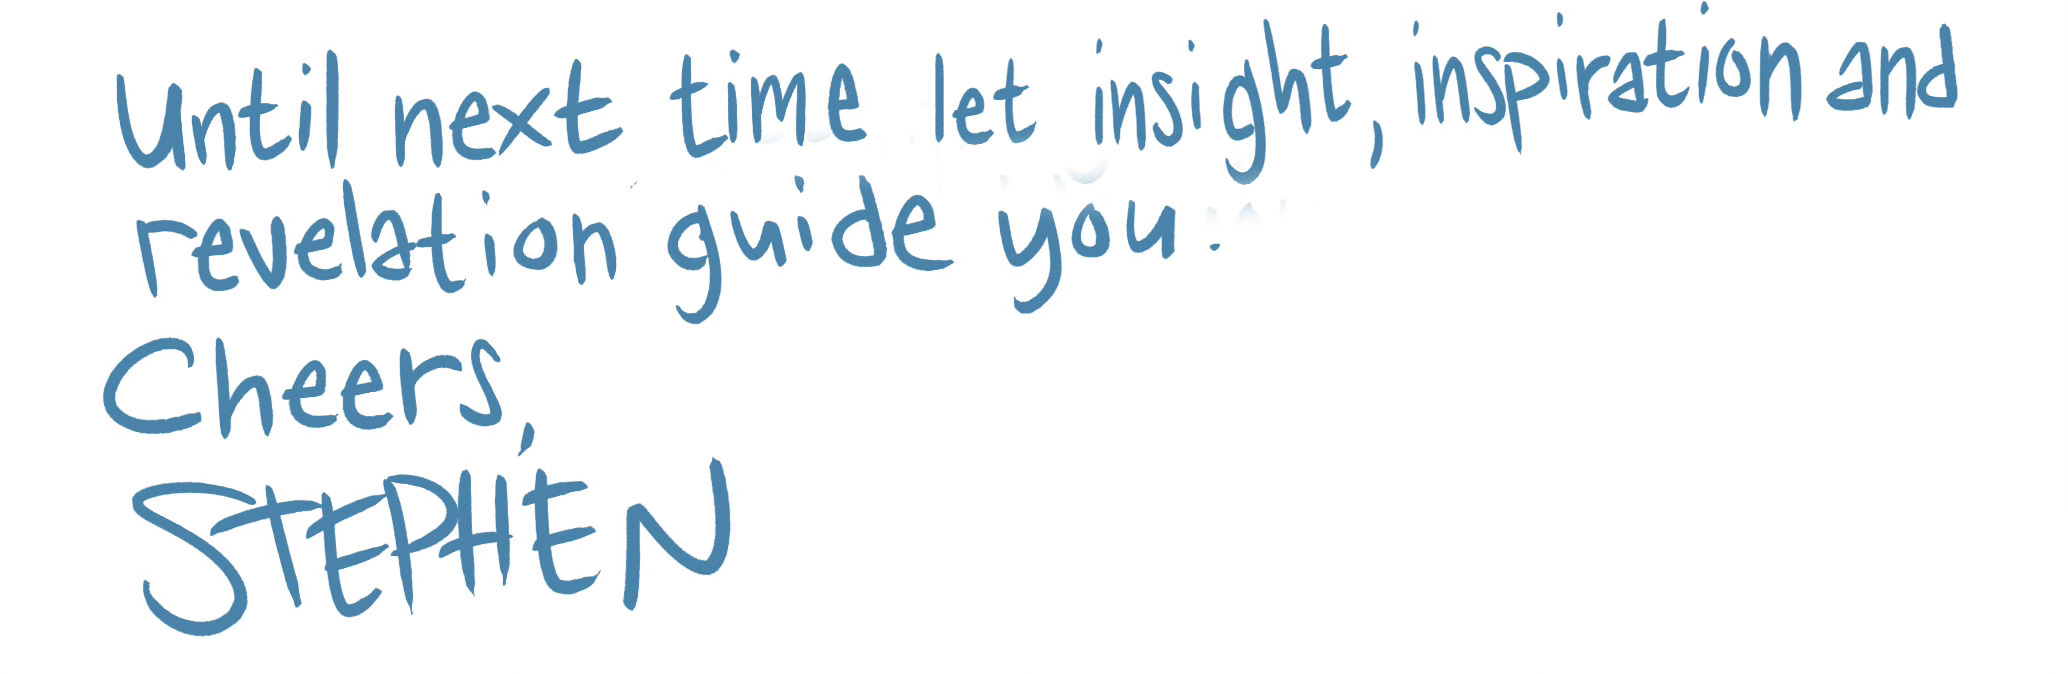 Until next time let insight, inspiration and
revelation guide you.
Cheers,
STEPHEN